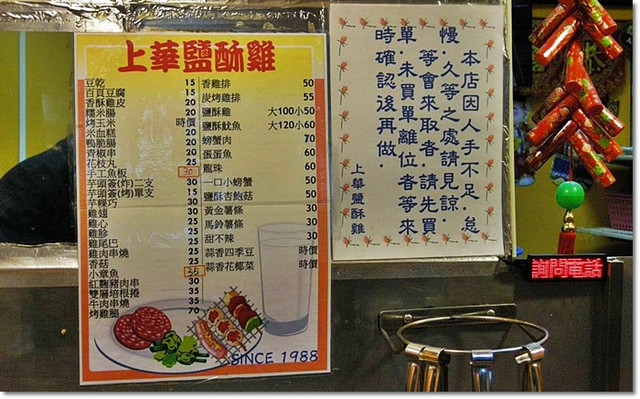 上華鹽酥雞
豆乾 15
百頁豆腐 15
香酥雞皮 20
糯米腸 20
烤玉米 時價
米血糕 20
鴨脆腸 20
青椒串 20
花枝丸 25
手工魚板 30
芋頭簽(炸)二支 30
芋頭簽(烤)單支 15
芋粿巧 30
雞翅 30
雞心 25
雞胗 25
雞尾巴 25
雞肉串燒 25
香菇 25
小章魚 35
紅麴豬肉串 30
雙層培根捲 35
牛肉串燒 35
烤雞腿 70
香雞排 50
炭烤雞排 55
鹽酥雞 大100小50
鹽酥魷魚 大120小60
螃蟹肉 70
張蛋魚 60
龍珠 60
一口小螃蟹 50
鹽酥杏鮑菇 50
黃金薯條 30
馬鈴薯條 30
甜不辣 30
蒜香四季豆 時價
蒜香花椰菜 時價
SINCE 1988
本店因人手不足,怠
慢.久等之處請見諒.
等會來取者.請先買
單.未買單離位者等來
時確認後再做.
上華鹽酥雞
詢問電話